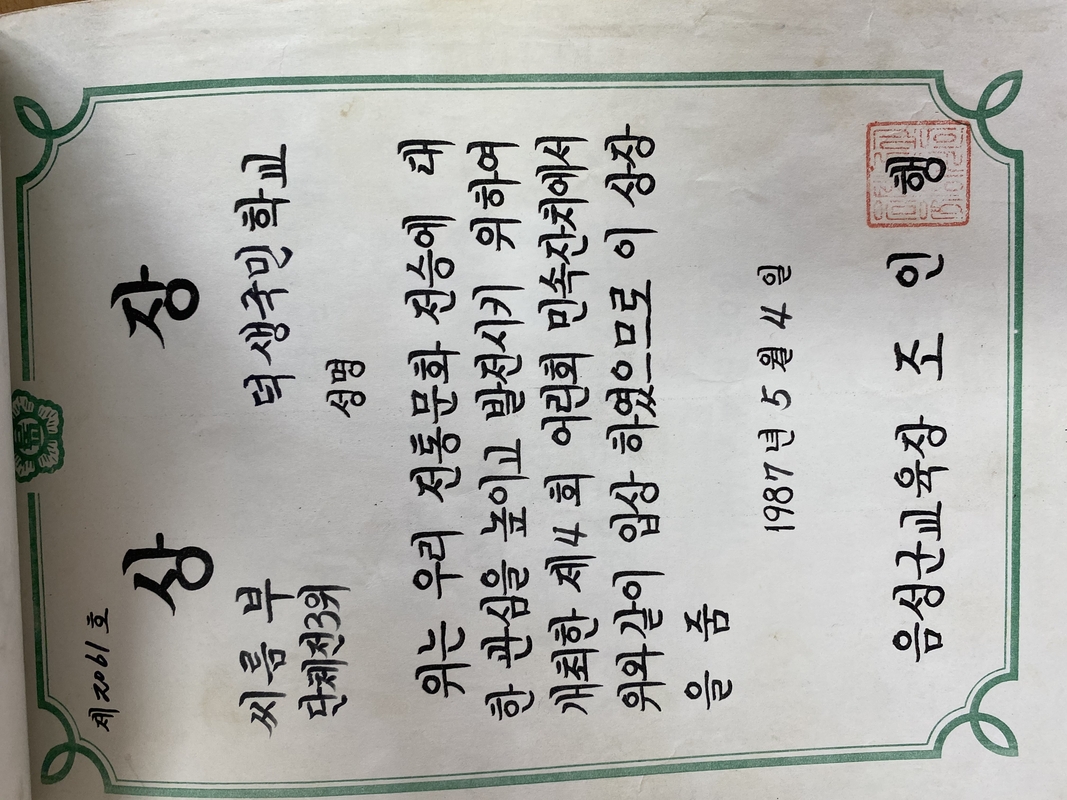 제 2061 호
상 장
씨름부 덕생국민학교
단체전3위 성명
위는 우리 전통문화 전승에 대
한 관심을 높이고 발전시키 위하여
개최한 제4회 어린회 민속잔치에서
위와같이 입상 하였으므로 이 상장
을 줌
1987년 5월 4일
음성군교육장 조 인 행